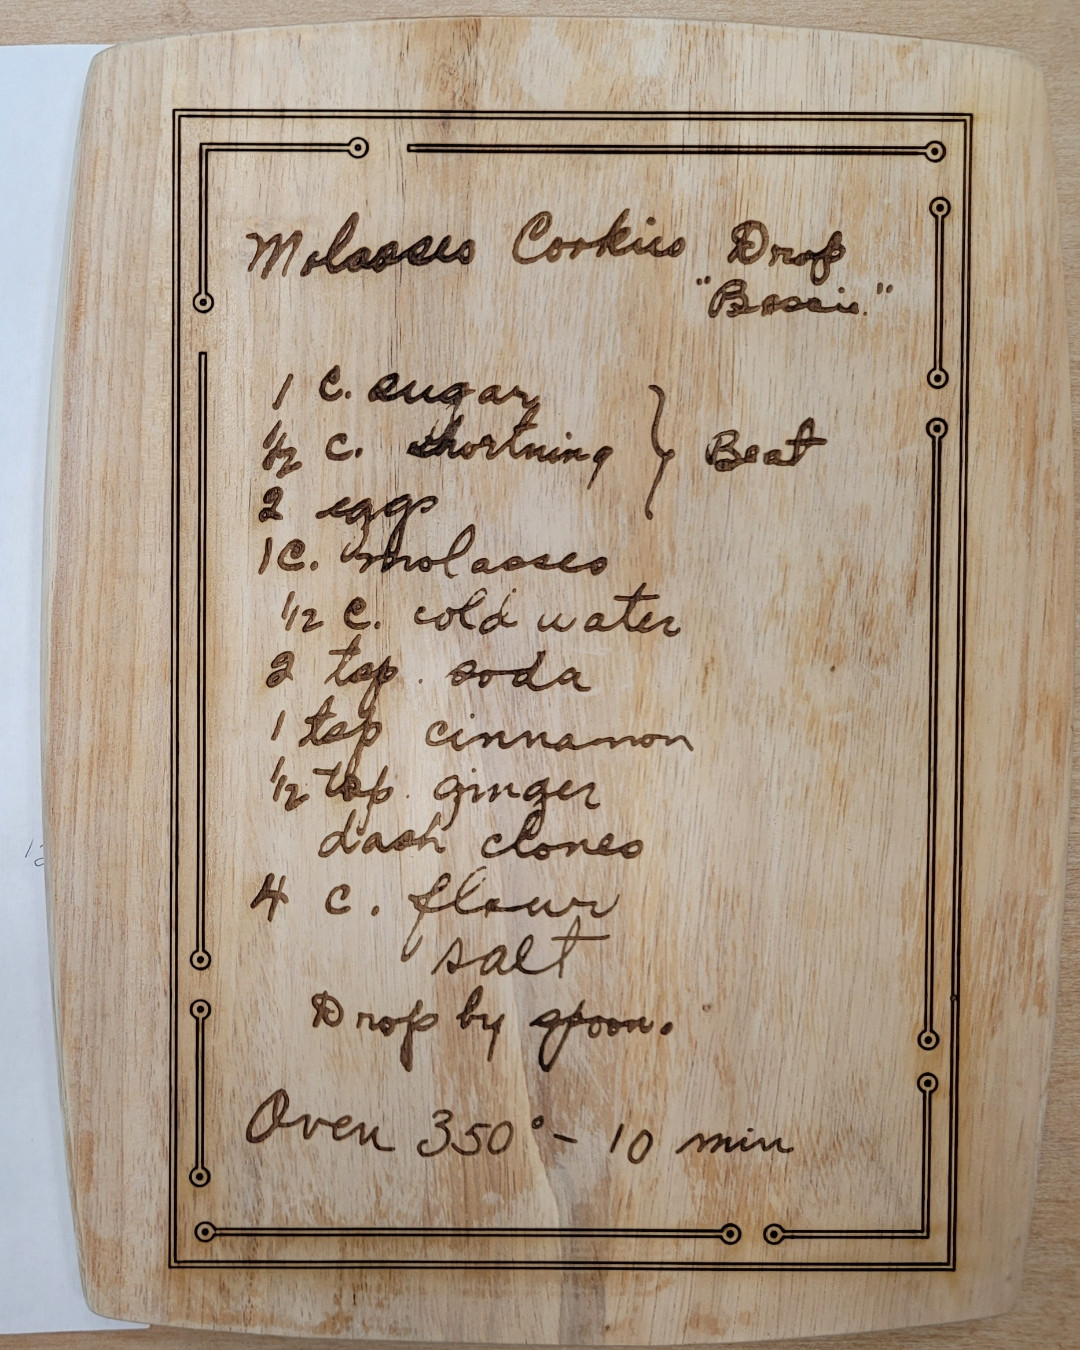 Molasses Cookies Drop
"Bessie."
1 C. sugar
1/2 C. shortning } Beat
2 eggs
1 C. molasses
1/2 C. cold water
2 tsp. soda
1 tsp cinnamon
1/2 tsp. ginger
dash cloves
4 C. flour
salt
Drop by spoon.
Oven 350° - 10 min